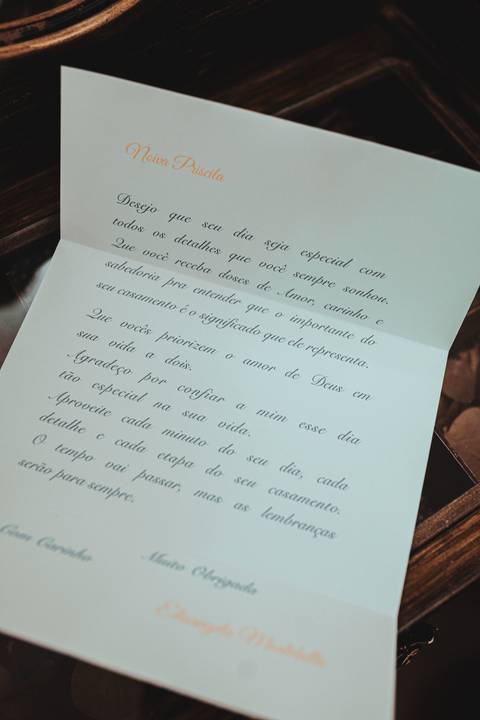 Noiva Priscila
Desejo que seu dia seja especial com
todos os detalhes que você sempre sonhou.
Que você receba doses de Amor, carinho e
sabedoria pra entender que o importante do
seu casamento é o significado que ele representa.
Que vocês priorizem o amor de Deus em
sua vida a dois.
Agradeço por confiar a mim esse dia
tão especial na sua vida.
Aproveite cada minuto do seu dia, cada
detalhe e cada etapa do seu casamento.
O tempo vai passar, mas as lembranças
serão para sempre.
Com Carinho Muito Obrigada